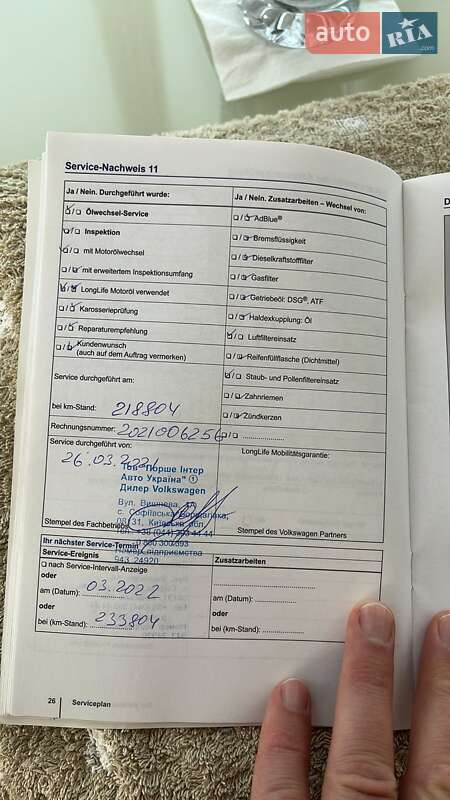 auto RIA
.com
Service-Nachweis 11
Ja / Nein. Durchgeführt wurde:
Ölwechsel-Service
Inspektion
mit Motorölwechsel
mit erweitertem Inspektionsumfang
LongLife Motoröl verwendet
Karosserieprüfung
Reparaturempfehlung
Kundenwunsch
(auch auf dem Auftrag vermerken)
Service durchgeführt am:
bei km-Stand: 218804
Rechnungsnummer: 2021006256
Service durchgeführt von:
26.03.2021
Тов "Порше Інтер
Авто Україна" ①
Дилер Volkswagen
Вул. Вишнева,
с. Софіївська Борщагівка,
31, Київська обл.,
Stempel des Fachbetriebs
Номер підприємства
943 24920
Ja / Nein. Zusatzarbeiten – Wechsel von:
AdBlue®
Bremsflüssigkeit
Dieselkraftstofffilter
Gasfilter
Getriebeöl: DSG®, ATF
Haldexkupplung: Öl
Luftfiltereinsatz
Reifenfüllflasche (Dichtmittel)
Staub- und Pollenfiltereinsatz
Zahnriemen
Zündkerzen
LongLife Mobilitätsgarantie:
Stempel des Volkswagen Partners
Ihr nächster Service-Termin
Service-Ereignis
nach Service-Intervall-Anzeige
oder
am (Datum): 03.2022
oder
bei (km-Stand): 233804
Zusatzarbeiten
am (Datum):
oder
bei (km-Stand):
26 Serviceplan
D